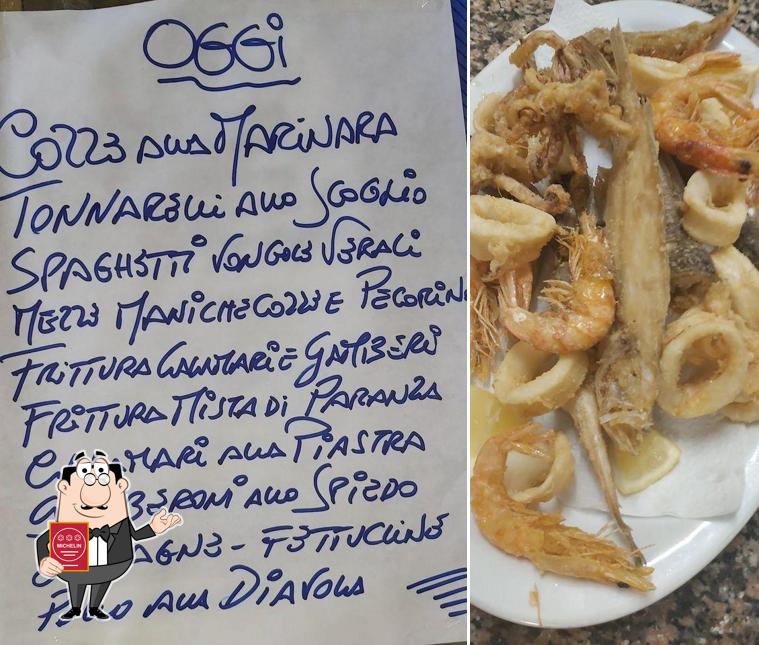 OGGI
COZZE ALLA MARINARA
TONNARELLI ALLO SCOGLIO
SPAGHETTI VONGOLE VERACI
MEZZE MANICHE COZZE E PECORINO
FRITTURA CALAMARI E GAMBERI
FRITTURA MISTA DI PARANZA
CALAMARI ALLA PIASTRA
ALLO SPIEDO
FETTUCCINE
POLLO ALLA DIAVOLA
MICHELIN